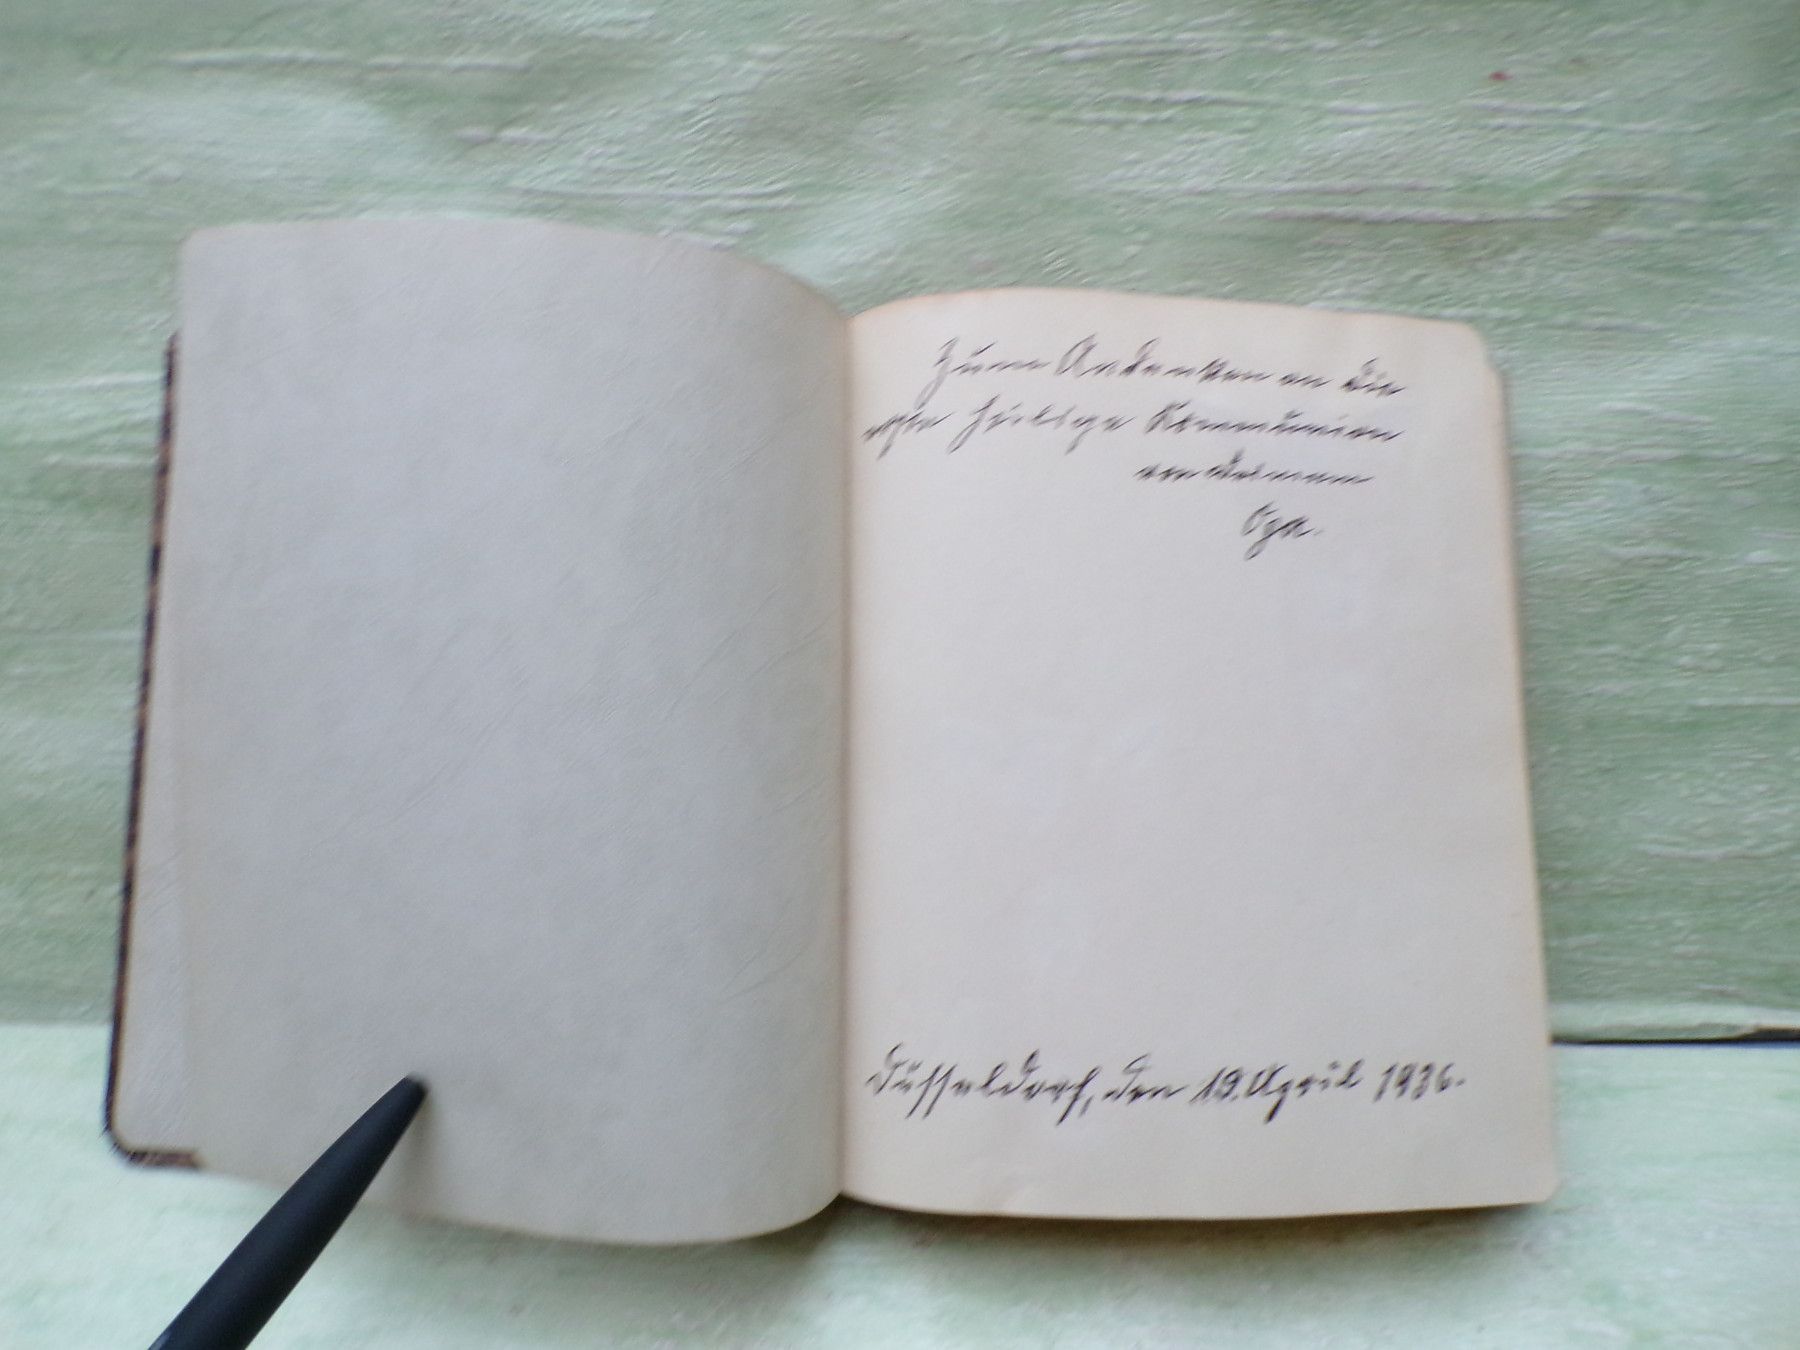 Zum Andenken an die
erste heilige Kommunion
von deinem
Opa.
Düsseldorf, den 19. April 1936.